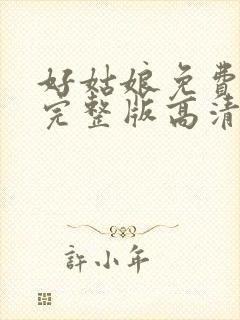 好姑娘免費
完整版高清
許小年